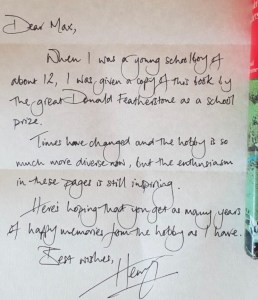 Dear Max,
When I was a young schoolboy of
about 12, I was given a copy of this book by
the great Donald Featherstone as a school
prize.
Times have changed and the hobby is so
much more diverse now, but the enthusiasm
in these pages is still inspiring.
Here's hoping that you get as many years
of happy memories from the hobby as I have.
Best wishes,
Henry